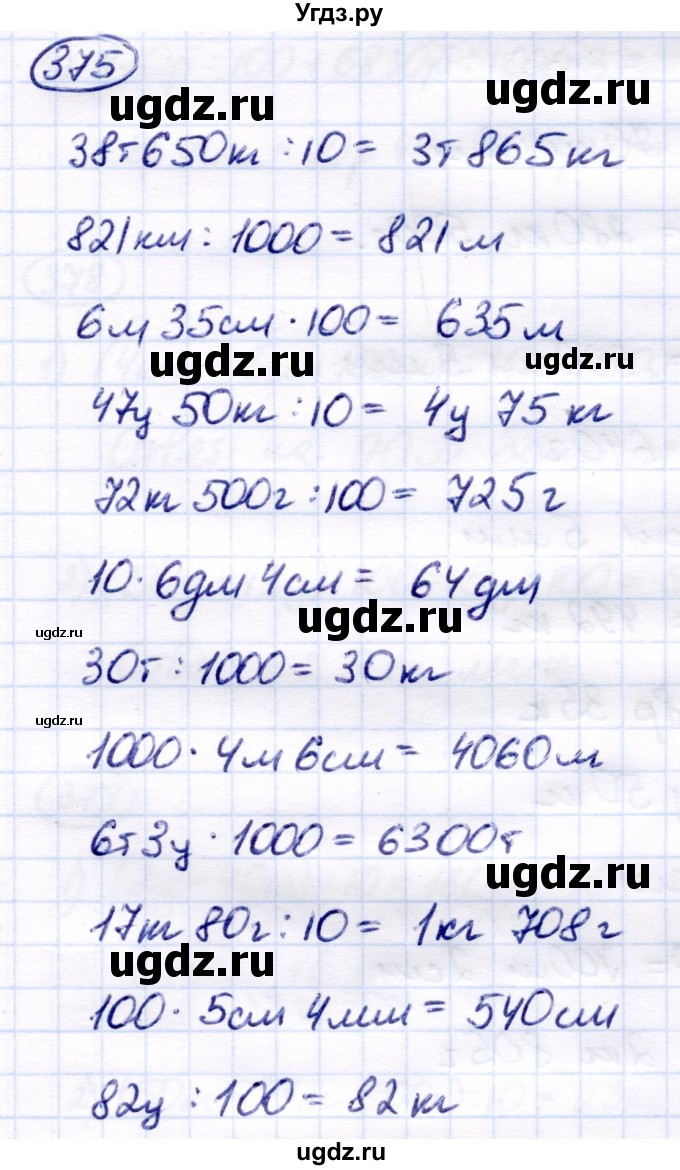 Угдз.ру
375
ugdz.ru ugdz.ru
38т650кг : 10 = 3т865кг
821км : 1000 = 821м
6м 35см · 100 = 635м
ugdz.ru ugdz.ru
47ц 50кг : 10 = 4ц 75 кг
72кг 500г : 100 = 725г
10 · 6дм 4см = 64дм
ugdz.ru ugdz.ru
30т : 1000 = 30кг
ugdz.ru
1000 · 4м 6см = 4060м
6т3ц · 1000 = 6300т
ugdz.ru
17кг 80г : 10 = 1кг 708г
ugdz.ru
100 · 5см 4мм = 540см
82ц : 100 = 82кг
ugdz.ru ugdz.ru